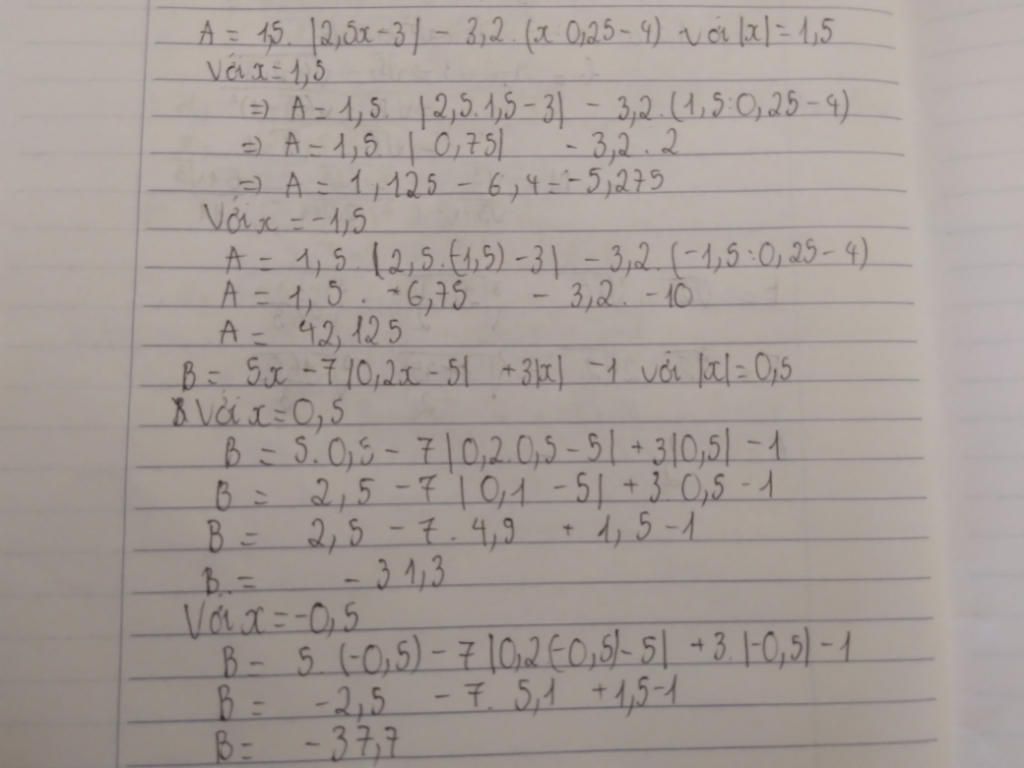 A = 1,5. |2,5x-3| - 3,2.(x:0,25-4) với |x|=1,5
Với x=1,5
=> A = 1,5. |2,5.1,5-3| - 3,2.(1,5:0,25-4)
=> A = 1,5. |0,75| - 3,2.2
=> A = 1,125 - 6,4 = -5,275
Với x = -1,5
A = 1,5. |2,5.(-1,5)-3| - 3,2.(-1,5:0,25-4)
A = 1,5. -6,75 - 3,2. -10
A = 42,125
B = 5x - 7|0,2x - 5| + 3|x| - 1 với |x|=0,5
Với x=0,5
B = 5.0,5 - 7|0,2.0,5-5| + 3|0,5| - 1
B = 2,5 - 7 |0,1 - 5| + 3 0,5 - 1
B = 2,5 - 7. 4,9 + 1,5 - 1
B = - 31,3
Với x=-0,5
B = 5.(-0,5) - 7|0,2(-0,5)-5| + 3.|-0,5| - 1
B = -2,5 - 7. 5,1 + 1,5-1
B = - 37,7